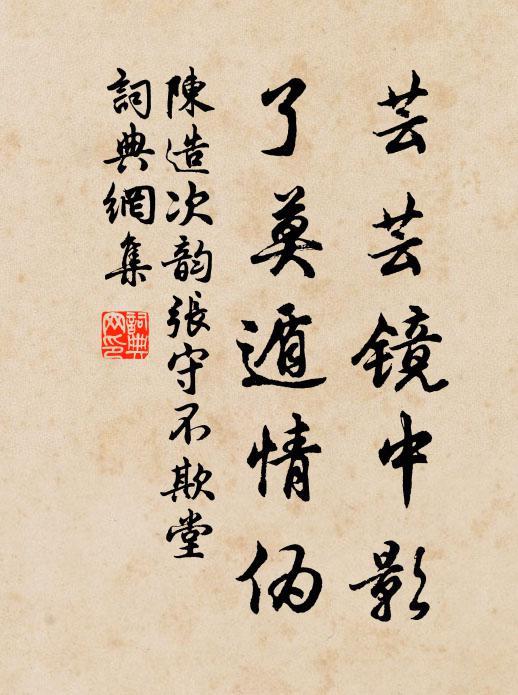 芸芸镜中影
了莫遁情伪
陳造次韵張守不欺堂
詞典網集
詞典网印